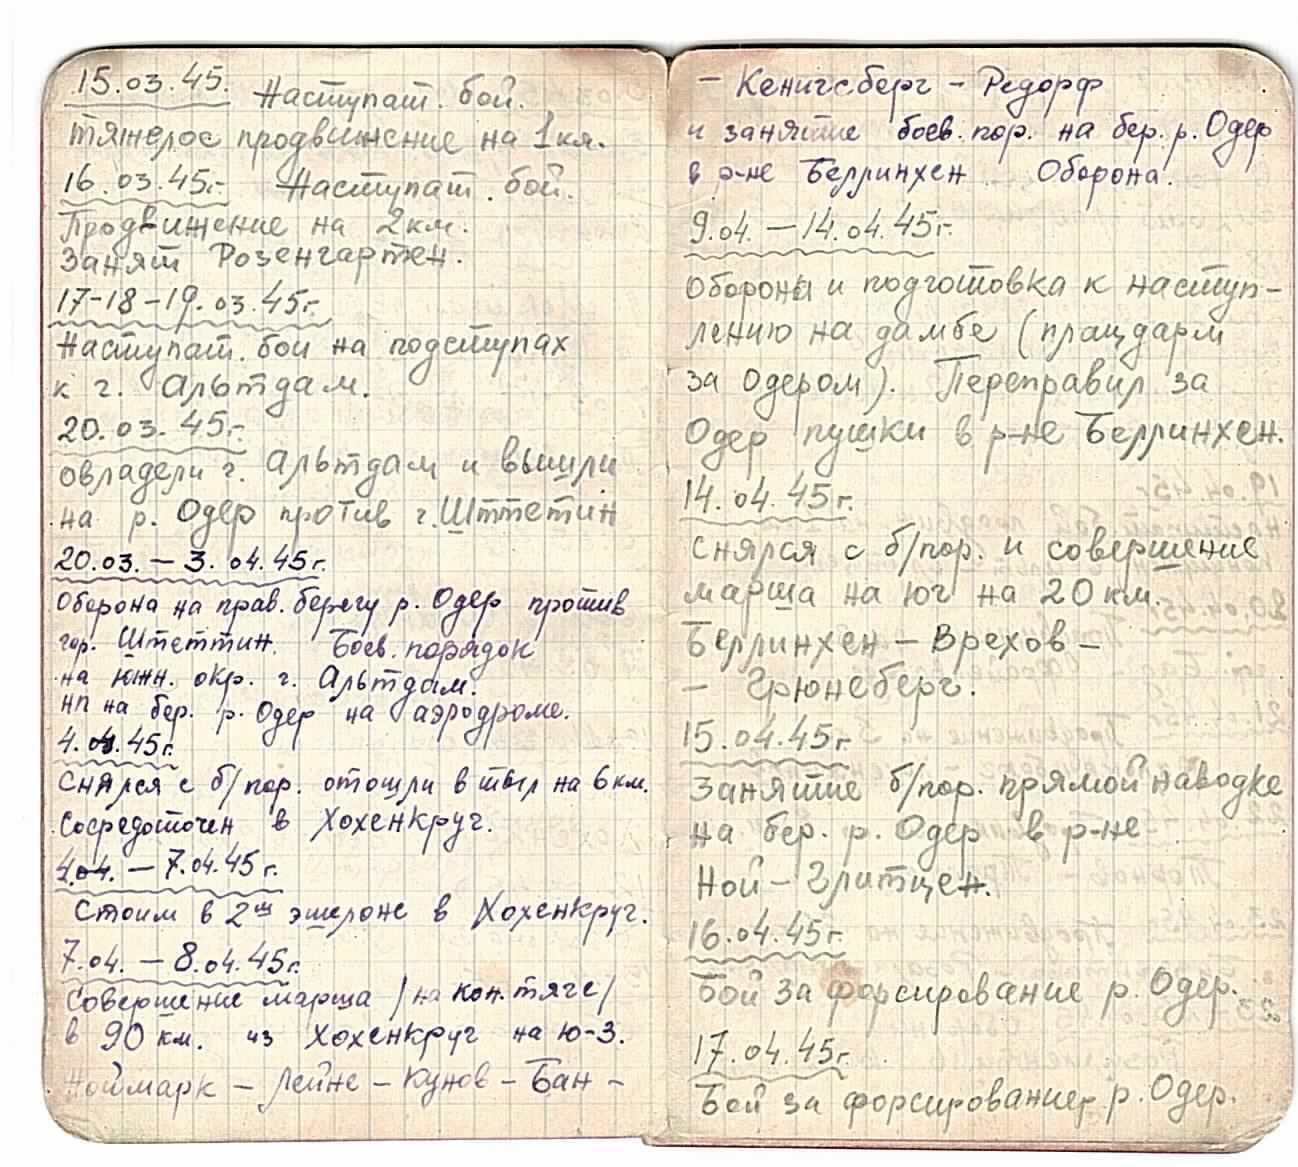 15.03.45. Наступат. бой.
тяжелое продвижение на 1 км.
16.03.45г. Наступат. бой.
Продвижение на 2 км.
Занят Розенгартен.
17-18-19.03.45г.
Наступат. бои на подступах
к г. Альтдам.
20.03.45г.
овладели г. Альтдам и вышли
на р. Одер против г. Штеттин
20.03. – 3.04.45г.
Оборона на прав. берегу р. Одер против
гор. Штеттин. Боев. порядок
на южн. окр. г. Альтдам.
НП на бер. р. Одер на аэродроме.
4.04.45г.
Снялся с б/пор. отошли в тыл на 6 км.
Сосредоточен в Хохенкруг.
4.04. – 7.04.45г.
Стоим в 2ом эшелоне в Хохенкруг.
7.04. – 8.04.45г.
Совершение марша /на кон. тяге/
в 90 км. из Хохенкруг на ю-З.
Ноймарк – Лейне – Кунов – Бан –
– Кенигсберг – Редорф
и занятие боев. пор. на бер. р. Одер
в р-не Беллинхен. Оборона.
9.04. – 14.04.45г.
Оборона и подготовка к наступ-
лению на дамбе (плацдарм
за Одером). Переправил за
Одер пушки в р-не Беллинхен.
14.04.45г.
Снялся с б/пор. и совершение
марша на юг на 20 км.
Беллинхен – Врехов –
– Грюнеберг.
15.04.45г.
Занятие б/пор. прямой наводке
на бер. р. Одер в р-не
Ной-Глитцен.
16.04.45г.
Бой за форсирование р. Одер.
17.04.45г.
Бой за форсирование р. Одер.